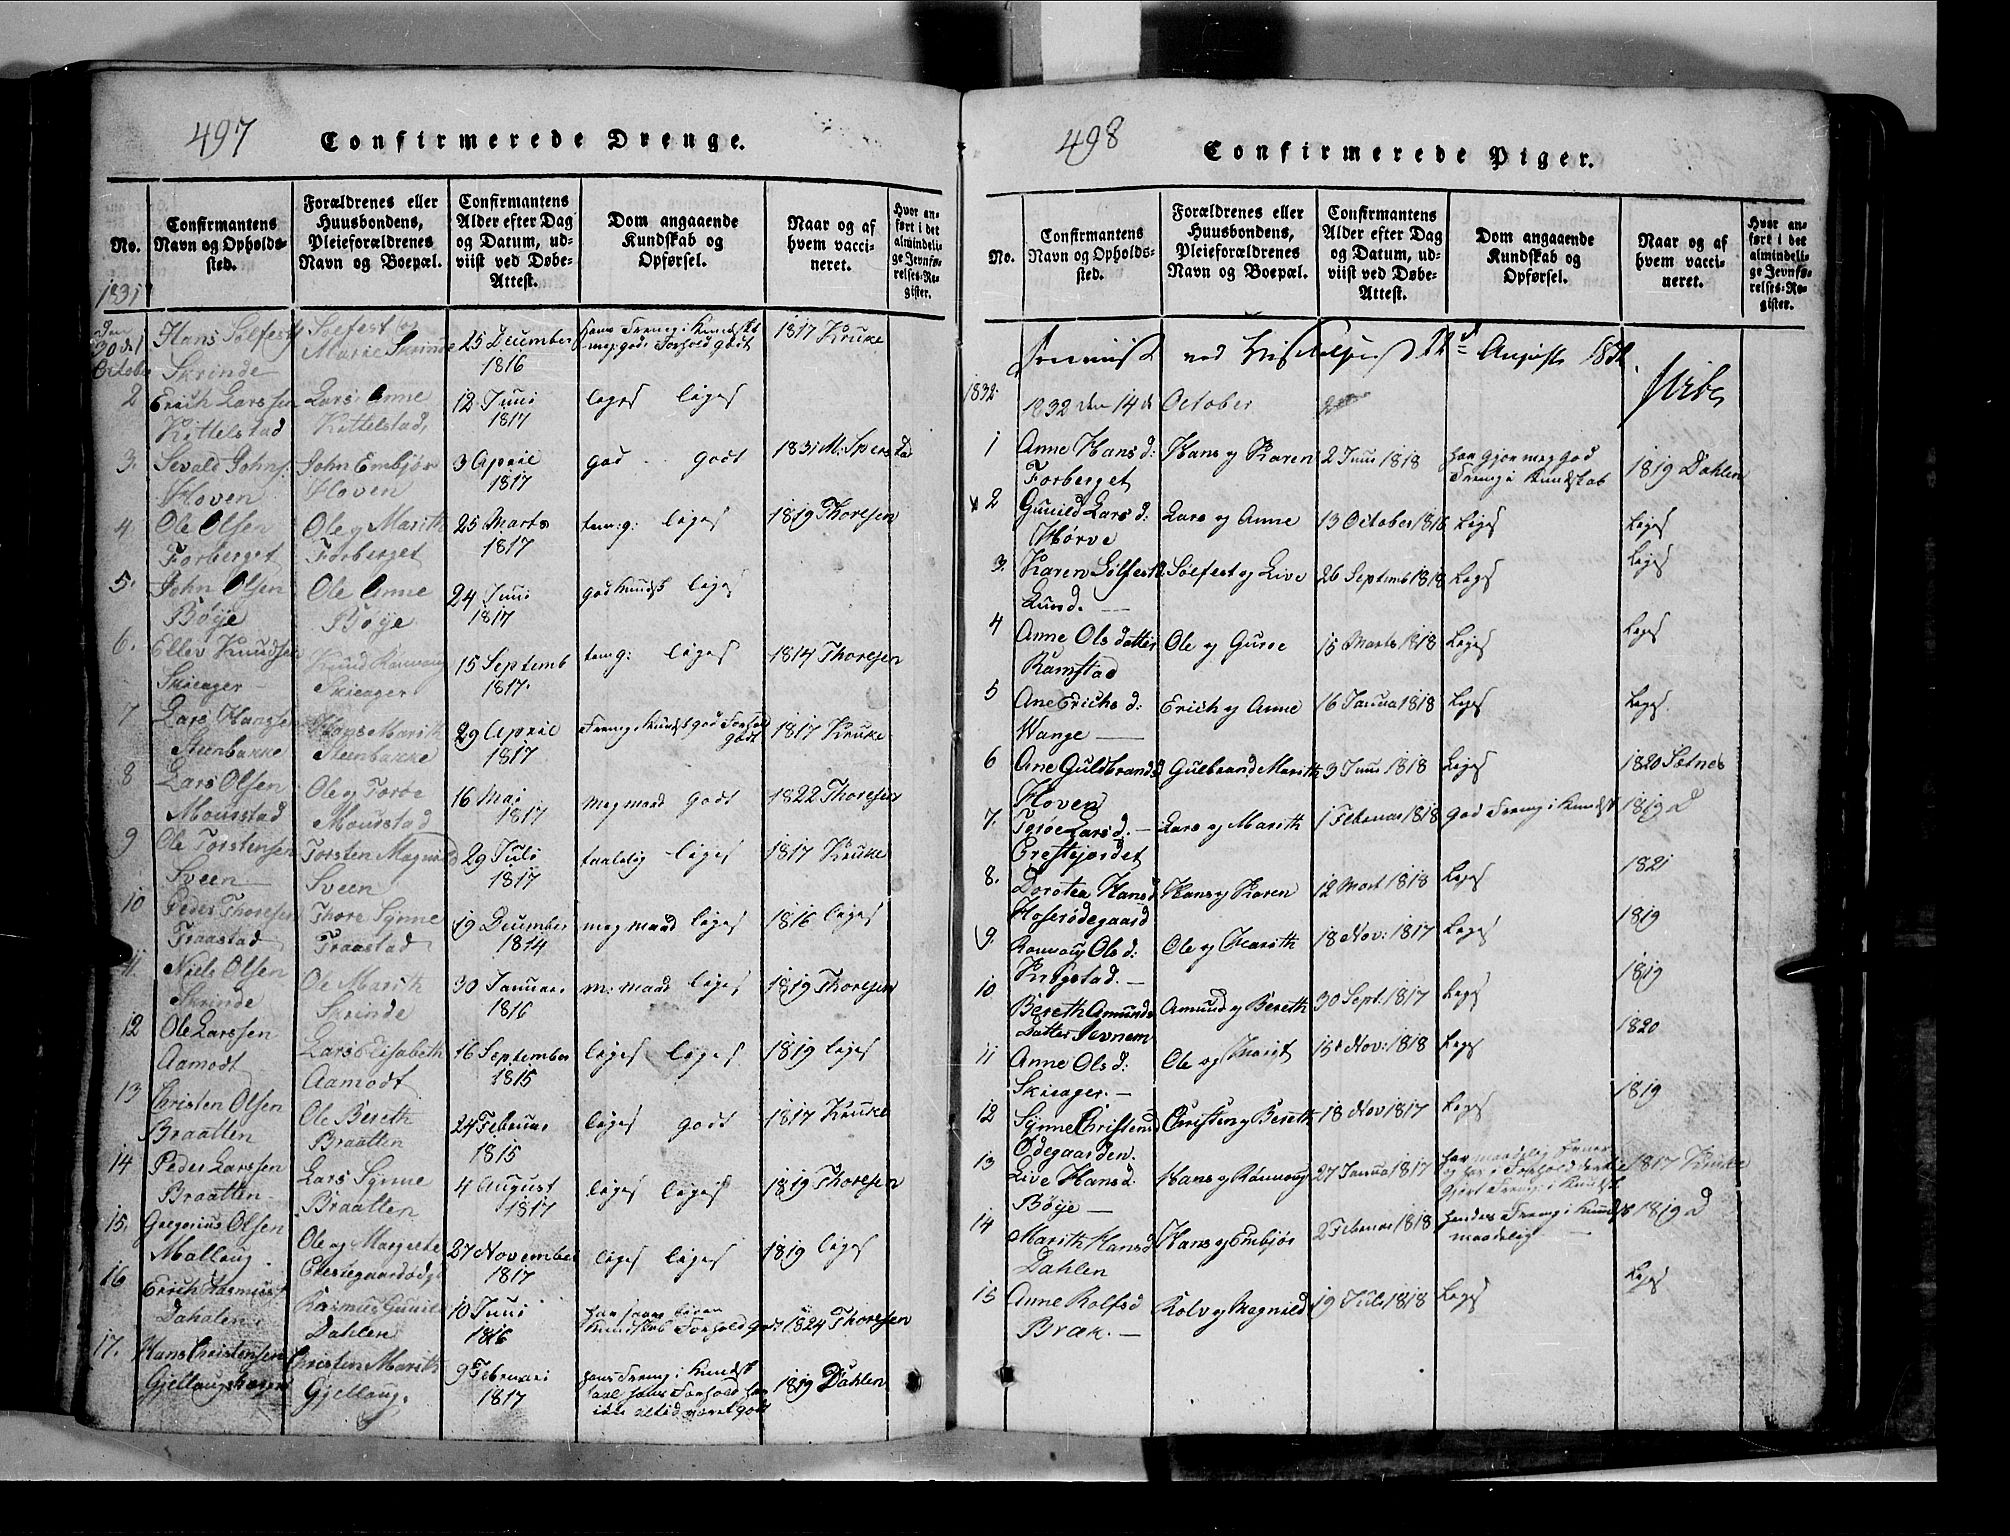 497
Confirmerede Drenge.
No.
Confirmantens Navn og Opholds-sted.
Forældrenes eller Huusbondens, Pleieforældrenes Navn og Boepæl.
Confirmantens Alder efter Dag og Datum, ud-viist ved Døbe-Attest.
Dom angaaende Kundskab og Opførsel.
Naar og af hvem vacci-neret.
Hvor an-ført i det almindeli-ge Jevnfø-relses-Re-gister.
1831
den 30 October
1 Hans Solfest Skrinde Solfest og Marie Skrinde 25 December 1816 1817 Kruke
2 Erich Larssen Kittelstad Lars Anne Kittelstad, 12 Juni 1817 liges liges
3. Sevald Johns: Hoven John Embjør Hoven 3 April 1817 god godt 1831 M:
4. Ole Olsen Forberget Ole og Marith Forberget 25 Marts 1817 tem:g: liges 1819 Thoresen
5. John Olsen Bøye Ole Anne Bøye 24 Juni 1817 god Kundsk liges
6. Ellev Knudsen Skieager Knud Ranvaug Skieager 15 Septemb 1817. temg: liges 1814 Thoresen
7 Lars Hansen Steenbakke Hans Marith Steenbakke 29 April 1817 1817 Kruke
8 Lars Olsen Mourstad Ole og Toroe Mourstad 16 Mai 1817 meg maad godt 1822 Thoresen
9 Ole Torstensen Sveen Torsten Magnild Sveen 29 Juli 1817 taalelig liges 1817 Kruke
10 Peder Thoresen Traastad Thore Synne Traastad 19 December 1814 meg maad liges 1816 liges
11. Niels Olsen Skrinde Ole Marith Skrinde 30 Januar 1816 m: maad liges 1819 Thoresen
12 Ole Larssen Aamodt Lars Elisabeth Aamodt 16 September 1815 liges liges 1819 liges
13 Christen Olsen Braatten Ole Bereth Braatten 24 Februar 1815 liges godt 1817 Kruke
14 Peder Larssen Braatten Lars Synne Braatten 4 August 1817 liges liges 1819 Thoresen
15. Gregorius Olsen Mallaug. Ole og Margrethe 27 November 1817 liges liges 1819 liges
16 Erich Rasmus: Dahalen Rasmus Gunild Dahlen 10 Juni 1816 Kundskab Forhold 1824 Thoresen
17. Hans Christensen Christen Marith Gjellaug. 9 Februari 1817 hans Fremg i Kundsk hans Forhold har ikke altid været godt 1819 Dahlen
498
Confirmerede Piger.
No.
Confirmantens Navn og Opholds-sted.
Forældrenes eller Huusbondens, Pleieforældrenes Navn og Boepæl.
Confirmantens Alder efter Dag og Datum, ud-viist ved Døbe-Attest.
Dom angaaende Kundskab og Opførsel.
Naar og af hvem vacci-neret.
Hvor an-ført i det almindeli-ge Jevnfø-relses-Re-gister.
ved August
1832. 1832 den 14 d October
1 Anne Hans d: Forberget Hans og Karen 2 Juni 1818 har gjort meg god Fremg i Kundskab 1819 Dahlen
2 Gunild Lars d: Hørve Lars og Anne 13 October 1816 Liges Liges
3. Karen Sølfestd Lund. Solfest og Live 26 Septemb 1818 Liges Liges
4 Anne Ols datter Ramstad Ole og Guroe 15 Marts 1818 Liges Liges
5 Ane Erichs d: Wange Erich og Anne 16 Janua 1818 Liges Liges.
6 Ane Guldbrands d Hoven Gulbrand Marith 3 Juni 1818 Liges 1820 Sætnes
7. Toroe Lars d. Lars og Marith 1 Februar 1818 God Fremg i Kundsk 1819 D
8. Dorotea Hansd Hans og Karen 12 Mart 1818 Liges 1821
9. Ranvaug Ols d: Ole og Marith 18 Nov: 1817 Liges 1819
10 Bereth Amunds Datter Amund og Bereth 30 Sept. 1817 Liges 1819
11 Anne Ols d: Skieager. Ole og Marit 15 Nov: 1818 Liges 1820
12 Synne Christensd Odegaarden. Christen og Bereth 18 Nov 1817 Liges 1819
13 Live Hans d. Bøye Hans og Rannoug 27 Janua 1817 1817 Kruke
14 Marith Hans d Dahlen Hans og Embjør 2 Februar 1818 hendes Fremg i Kundsk maadelig 1819 D
15 Anne Rolfsd Bræk. Rolv og Magnild 19 Juli 1818 Liges Liges